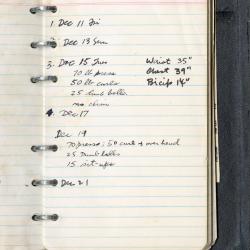 1. Dec 11 Fri
2. Dec 13 Sun
3. Dec 15 Tues
70 lb press
50 lb curls
25 dumb bells
no chins
Wrist 35"
Chest 39"
Bicip 14"
4. Dec 17
Dec 19
70 press; 50 curl & over head
25 Dumb bells
15 sit-ups
Dec 21